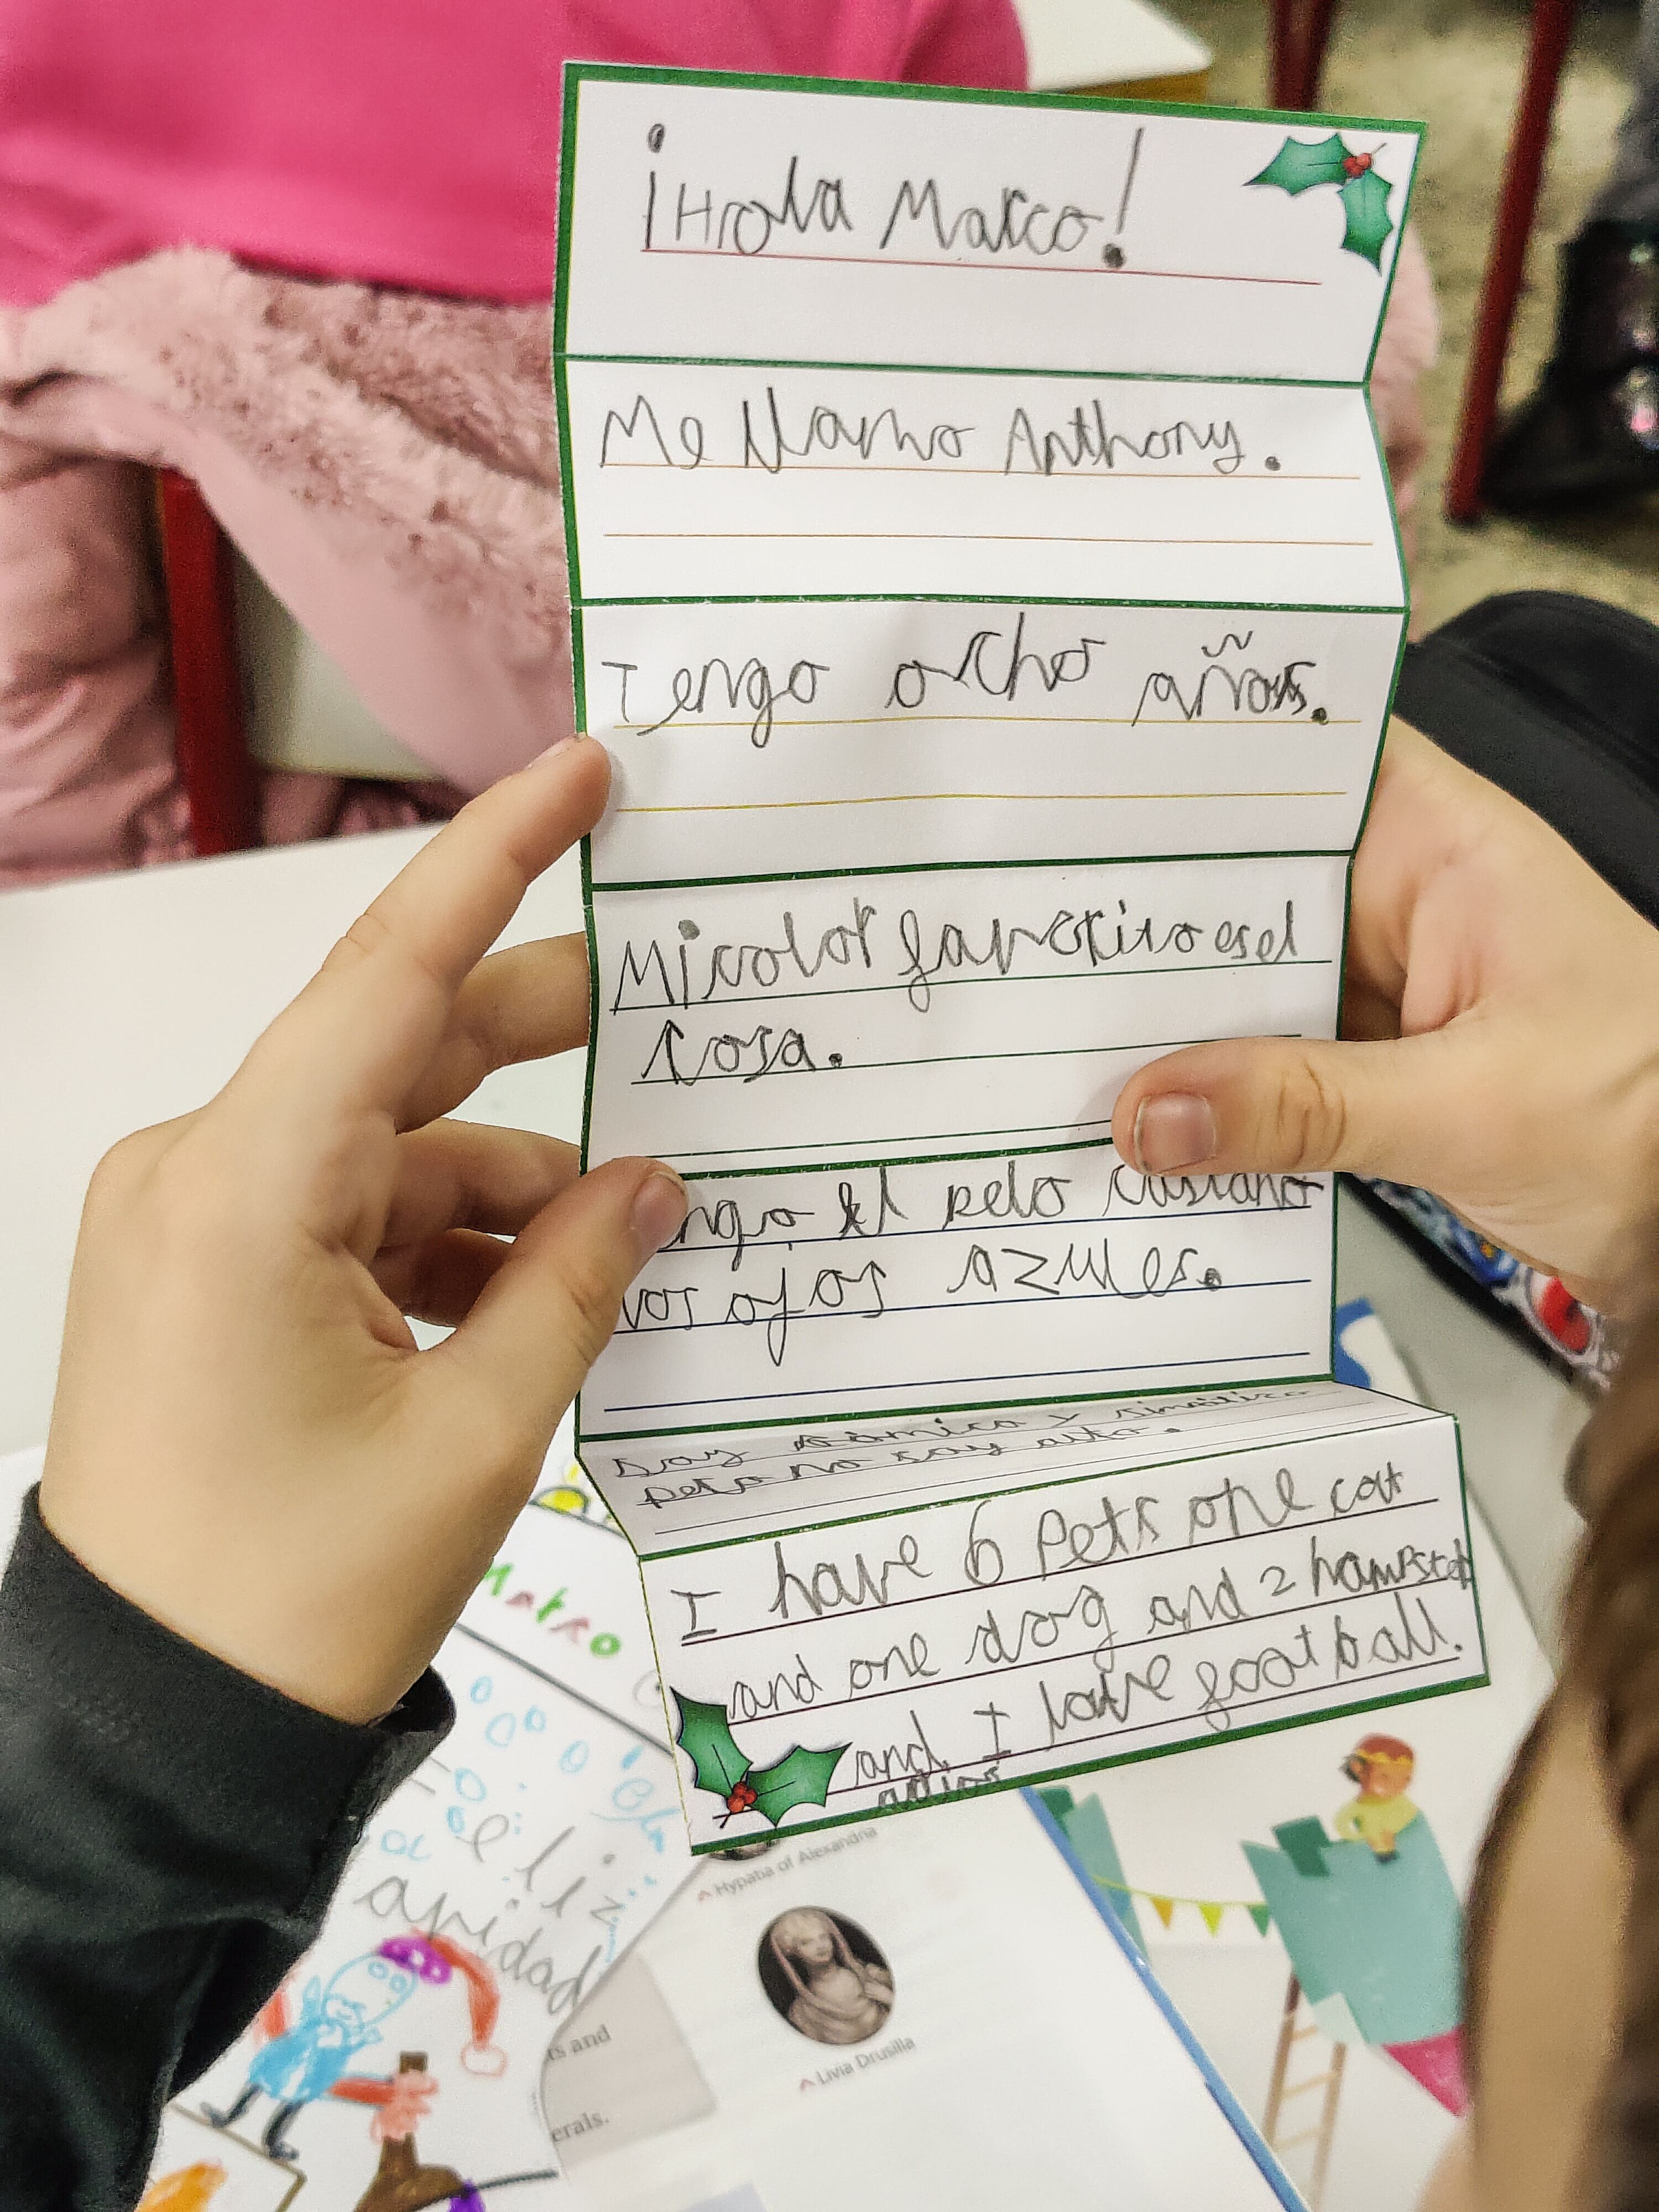 ¡Hola Marco!
Me llamo Anthony.
Tengo ocho años.
Mi color favorito es el
rosa.
ngo el pelo castaño
los ojos azules.
Soy cómico y simpático
pero no soy alto.
I have 6 Pets one cat
and one dog and 2 hampster
and I love football.
adios
Marco
eliz
avidad
Hypatia of Alexandria
Livia Drusilla
ts and
erals.